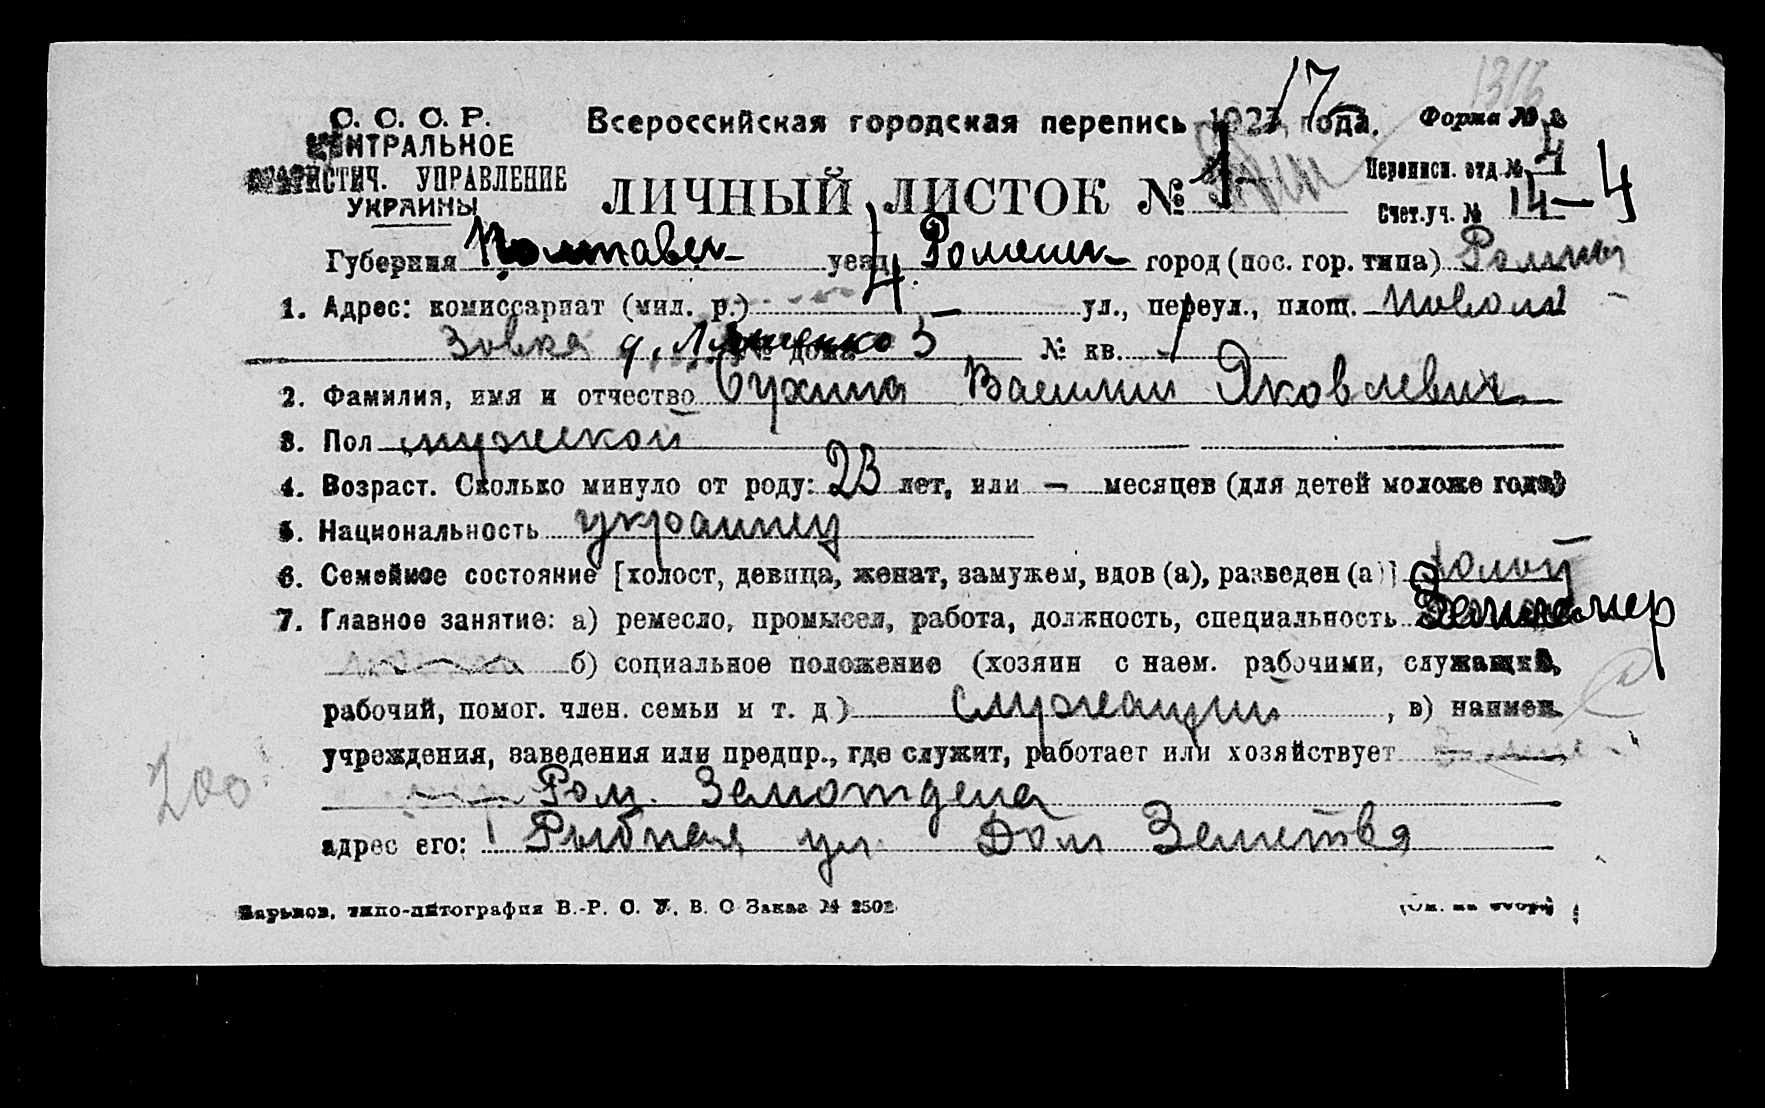 1316
17
С. С. С. Р. Всероссийская городская перепись 1923 года. Форма № 2
ЦЕНТРАЛЬНОЕ
СТАТИСТИЧ. УПРАВЛЕНИЕ
УКРАИНЫ
ЛИЧНЫЙ ЛИСТОК № 1
Переписн. отд. № 4
Счет. уч. № 14-4
Губерния Полтавск уезд Роменск город (пос. гор. типа) Ромны
1. Адрес: комиссариат (мил. р.) 4 ул., переул., площ.
№ дома 5 № кв. 1
2. Фамилия, имя и отчество Сухина Василий Яковлевич
3. Пол мужской
4. Возраст. Сколько минуло от роду: 23 лет, или — месяцев (для детей моложе года)
5. Национальность украинец
6. Семейное состояние [холост, девица, женат, замужем, вдов (а), разведен (а)] холост
7. Главное занятие: а) ремесло, промысел, работа, должность, специальность Землемер
б) социальное положение (хозяин с наем. рабочими, служащий,
рабочий, помог. член. семьи и т. д) Служащий, в) наимен.
учреждения, заведения или предпр., где служит, работает или хозяйствует
Ром. Земотдела
200
адрес его: Рыбная ул. Дом Земства
Харьков, типо-литография В.-Р. О. У. В. О Заказ № 2502 (См. на обор.)